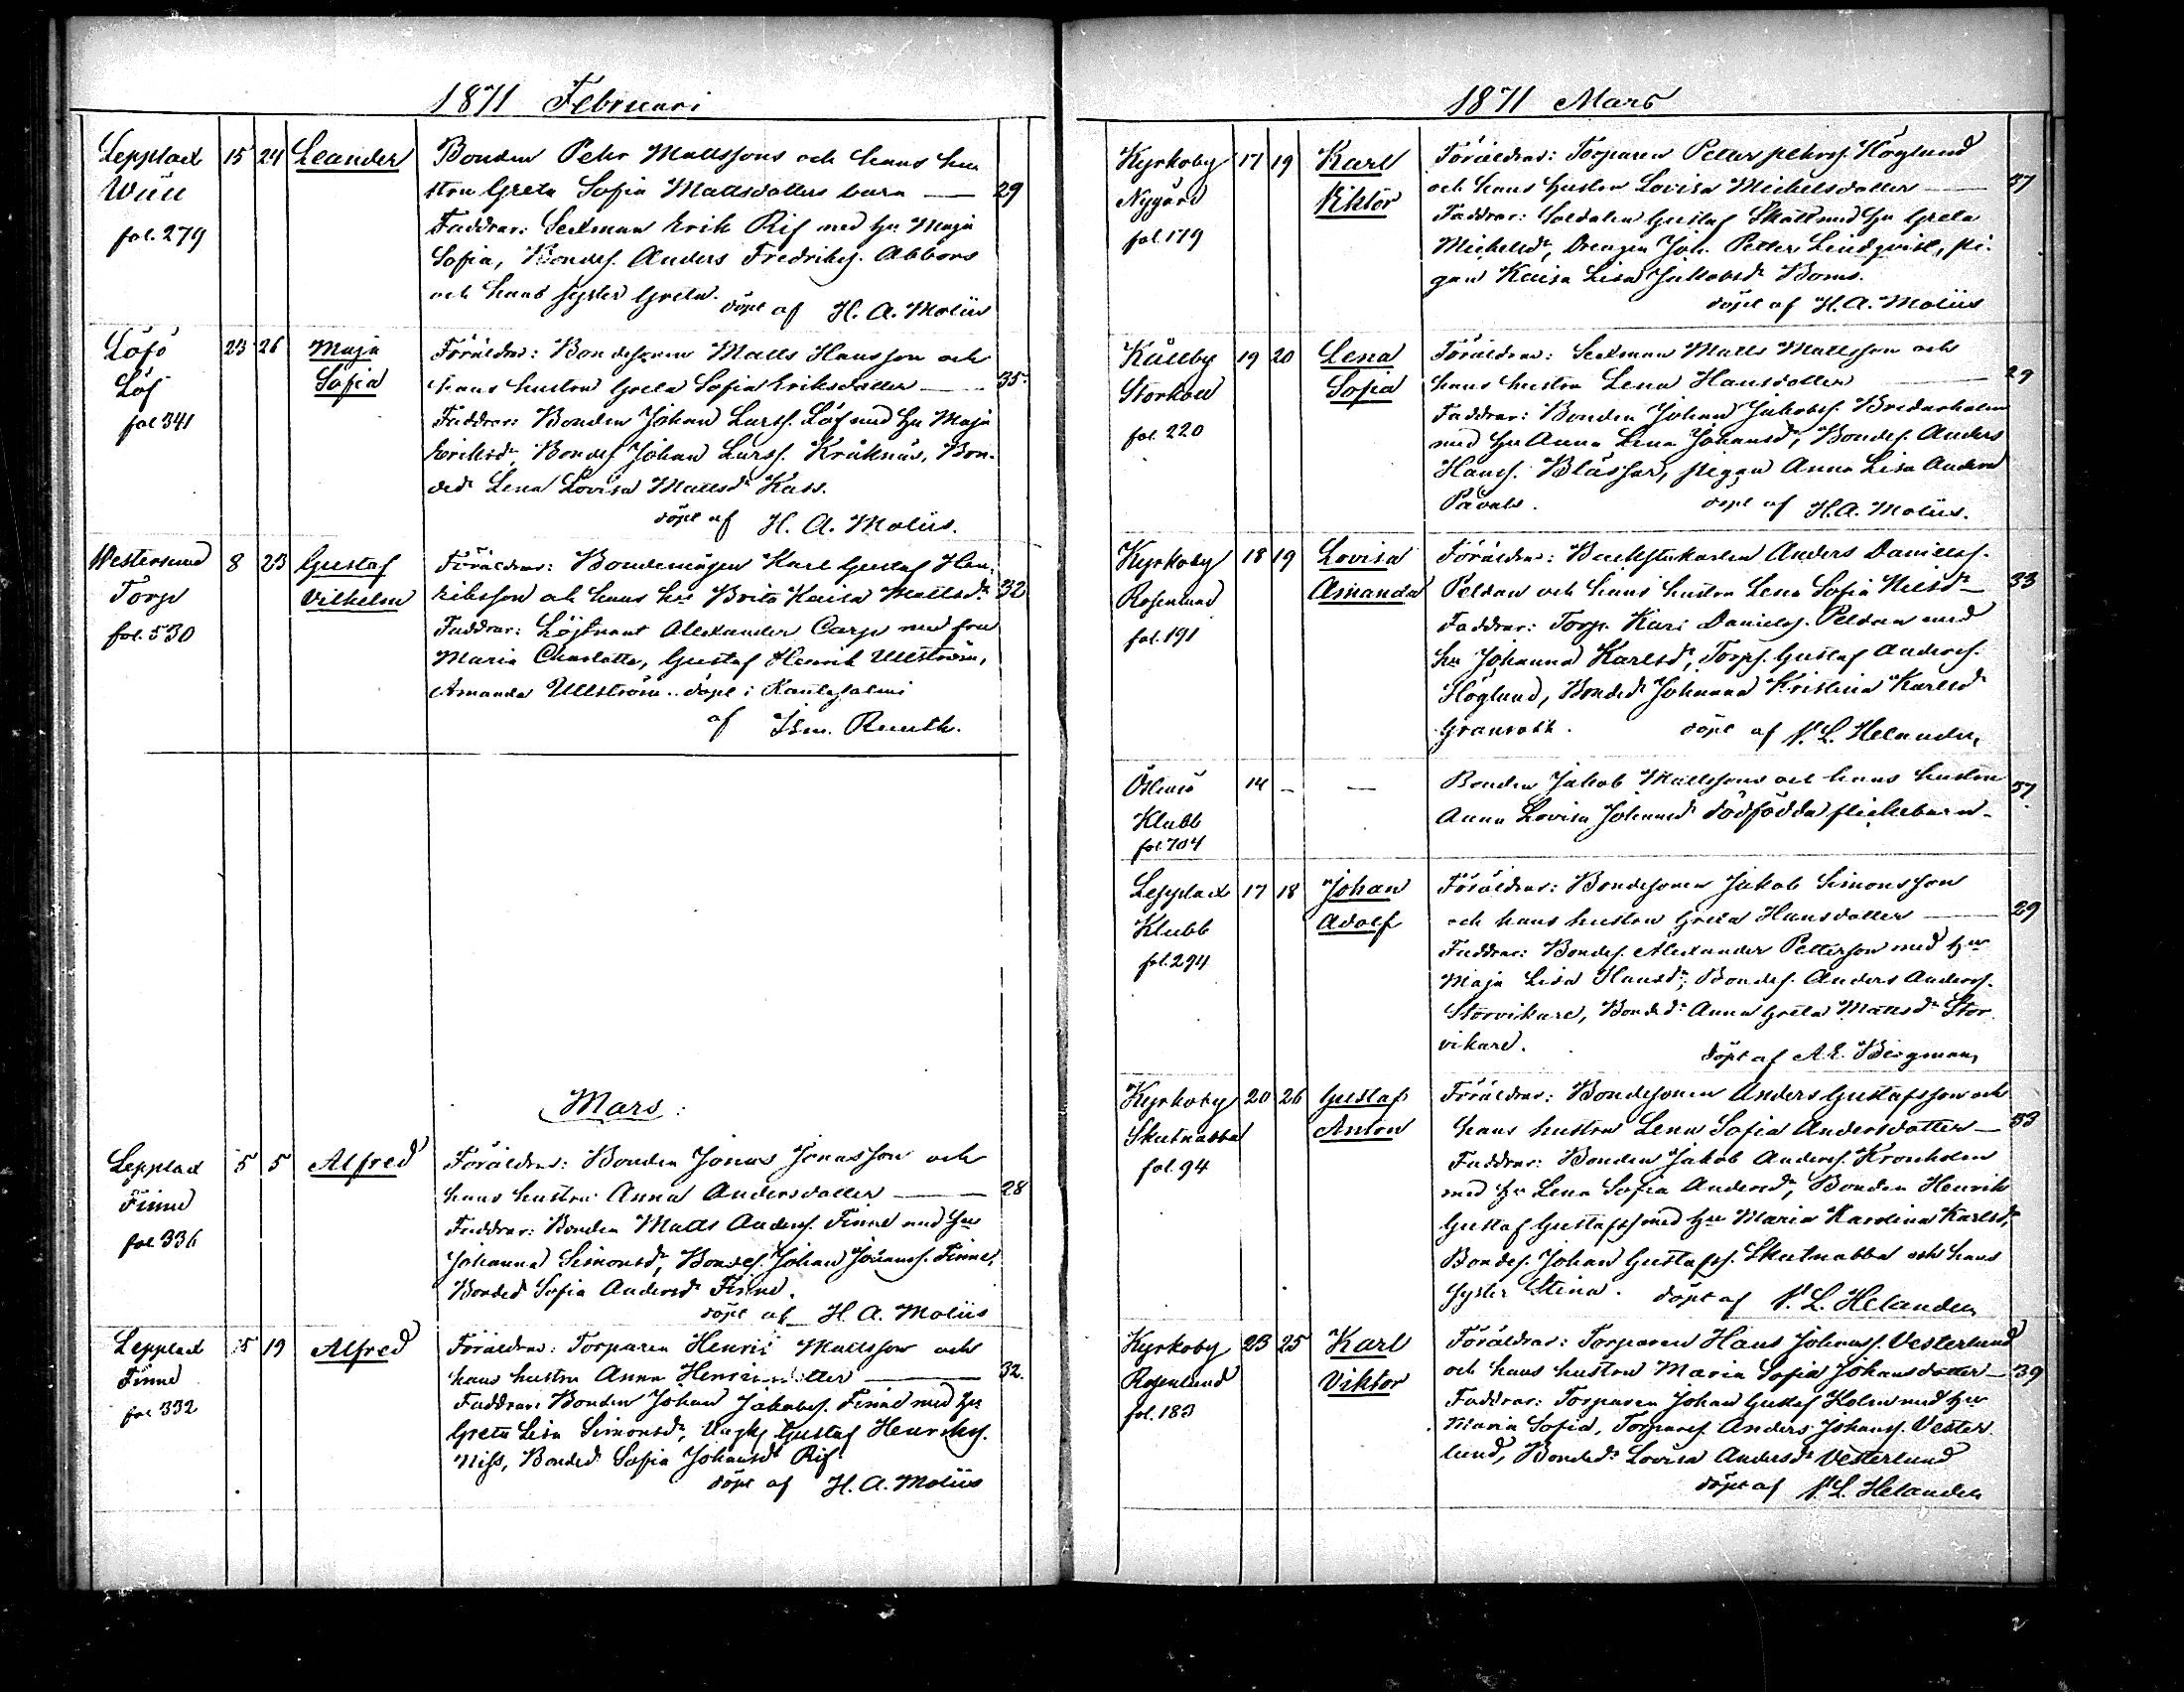 1871 Februari
Lepplax 15 24 Leander Bonden Pehr Mattssons och hans hu
stru Greta Sofia Mattsdotters barn — 29
fol. 279
Faddrar: Sexman Erik Rif med hu Maja
Sofia, Bondes. Anders Fredriks. Abbors
och hans syster Greta.
döpt af H. A. Moliis
Löfö 23 26 Maja Föräldrar: Bondesonen Matts Hansson och
Löf Sofia hans hustru Greta Sofia Eriksdotter — 35.
fol 341 Faddrar: Bonden Johan Larss. Löf med hu Maja
Eriksdr, Bondes Johan Larss. Kråknäs, Bon-
dedr Lena Lovisa Mattsdr Kass.
döpt af H. A. Moliis.
Westersund 8 23 Gustaf Föräldrar: Bondemågen Karl Gustaf Hen-
Torp Vilhelm riksson och hans hu Brita Kaisa Mattsdr 32
fol. 530 Faddrar: Löjtnant Alexander Carp med fru
Maria Charlotta, Gustaf Henrik Ullström,
Amanda Ullström. döpt i
af
Mars:
Lepplax 5 5 Alfred Föräldrar: Bonden Jonas Jonasson och
Finne hans hustru Anna Andersdotter — 28
fol 336 Faddrar: Bonden Matts Anders. Finne med hu
Johanna Simonsdr, Bondes. Johan Johanss. Finne,
Bonded Sofia Andersdr Finne.
döpt af H. A. Moliis
Lepplax 15 19 Alfred Föräldrar: Torparen Henrik Mattsson och
Finne hans hustru Anna Henriksdotter — 32.
fol 332 Faddrar: Bonden Johan Jakobs. Finne med hu
Greta Lisa Simonsdr, Gustaf Henriks.
Niss, Bonded Sofia Johansdr Rif.
döpt af H. A. Moliis
1871 Mars
Kyrkoby 17 19 Karl Föräldrar: Torparen Petter Pehrs. Höglund
Nygård Viktor och hans hustru Lovisa Michelsdotter — 37
fol. 179 Faddrar: Soldaten Gustaf Skått med hu Greta
Michelsdr, Drengen Joh. Petter Lindqvist, pi-
gan Kaisa Lisa Jakobsdr Boms.
döpt af H. A. Moliis
Kållby 19 20 Lena Föräldrar: Sexman Matts Mattsson och
Sofia hans hustru Lena Hansdotter — 29
fol. 220 Faddrar: Bonden Johan Jakobs. Bredarholm
med hu Anna Lena Johansdr, Bondes. Anders
Hanss. Blässar, pigan Anna Lisa Andersd
Påvals. döpt af H. A. Moliis.
Kyrkoby 18 19 Lovisa Föräldrar: Backstukarlen Anders Daniels.
Rosenlund Amanda Peldan och hans hustru Lena Sofia Nilsdr — 33
fol. 191 Faddrar: Torp. Karl Daniels. Peldan med
hu Johanna Karlsdr, Torps. Gustaf Anders.
Höglund, Bondedr Johanna Kristina Karlsdr
Granroth. döpt af N. L. Helander
14 - — Bonden Jakob Mattssons och hans hustru
Klubb Anna Lovisa Johansdr dödfödda flickebarn - 37.
fol. 704
Lepplax 17 18 Johan Föräldrar: Bondesonen Jakob Simonsson
Klubb Adolf och hans hustru Greta Hansdotter — 29
fol. 294 Faddrar: Bondes. Alexander Petterson med hu
Maja Lisa Hansdr, Bondes. Anders Anders.
Storvikare, Bondedr Anna Greta Mattsdr Stor
vikare.
döpt af A. E. Bergman
Kyrkoby 20 26 Gustaf Föräldrar: Bondesonen Anders Gustafsson och
Skutnabba Anton hans hustru Lena Sofia Andersdotter — 33
fol. 94 Faddrar: Bonden Jakob Anders. Kronholm
med hu Lena Sofia Andersdr, Bonden Henrik
Gustaf Gustafss med hu Maria Karolina Karlsdr,
Bondes. Johan Gustafs. Skutnabba och hans
syster Stina. döpt af N. L. Helander
Kyrkoby 23 25 Karl Föräldrar: Torparen Hans Johans. Vesterlund
Rosenlund Viktor och hans hustru Maria Sofia Johansdotter — 39
fol. 183 Faddrar: Torparen Johan Gustaf Holm med hu
Maria Sofia, Torpares. Anders Johans. Vester
lund, Bondedr Lovisa Andersdr Vesterlund
döpt af N. L. Helander
2